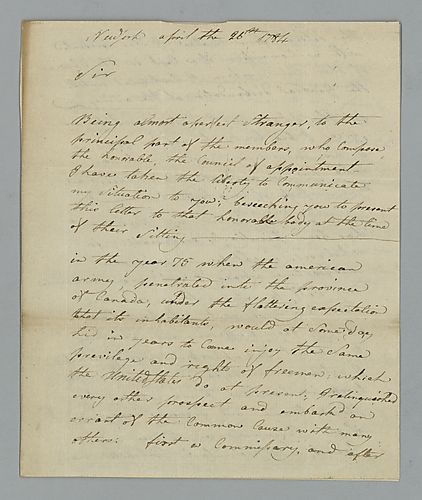 NewYork april the 26th 1784
Sir
Being almost a perfect Stranger, to the
principal part of the members, who compose
the honorable, the Councel of appointment
I have taken the liberty to Communicate
my Situation to you; beseeching you to present
this letter to that honorable body at the time
of their Sitting
in the year 75 when the american
army, penetrated into the province
of Canada, under the flattering expectation
that its inhabitants, would at Some day,
hid in years to Come injoy the Same
previlege and rights of freemen; which
the United States do at present; I relinquished
every other prospect and embark'd on
errant of the Common Cause with many
others: first a Commissary, and after